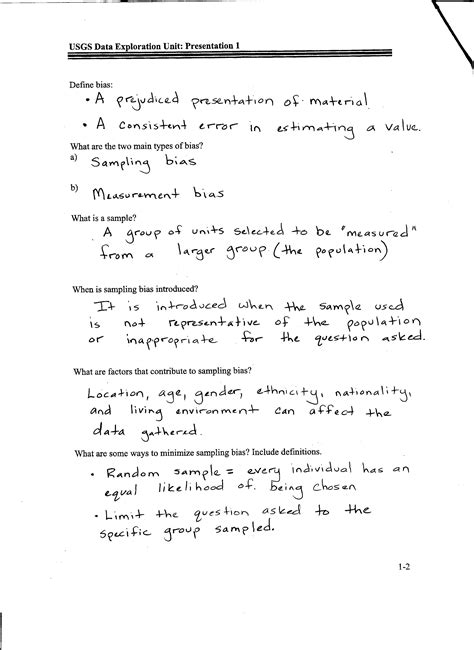 USGS Data Exploration Unit: Presentation 1
Define bias:
• A prejudiced presentation of material
• A consistent error in estimating a value.
What are the two main types of bias?
a) Sampling bias
b) Measurement bias
What is a sample?
A group of units selected to be "measured"
from a larger group (the population)
When is sampling bias introduced?
It is introduced when the sample used
is not representative of the population
or inappropriate for the question asked.
What are factors that contribute to sampling bias?
Location, age, gender, ethnicity, nationality,
and living environment can affect the
data gathered.
What are some ways to minimize sampling bias? Include definitions.
• Random sample = every individual has an
equal likelihood of being chosen
• Limit the question asked to the
specific group sampled.
1-2